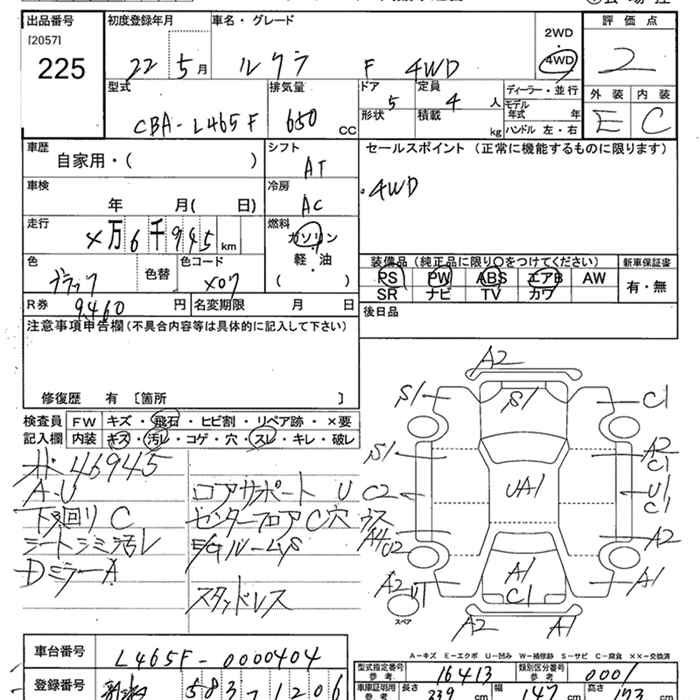 出品番号 初度登録年月 車名・グレード 2WD 4WD 評価点
[2057] 225 22 5月 ルクラ F 4WD 2
型式 排気量 ドア 5 定員 4人 ディーラー・並行 外装 内装
CBA-L465F 650 CC 形状 積載 kg モデル年式 年 ハンドル 左・右 E C
車歴 自家用・( ) シフト AT セールスポイント (正常に機能するものに限ります)
車検 年 月( 日) 冷房 AC ・4WD
走行 ×万6千945km 燃料 ガソリン 軽・油 ( )
色 ブラック 色替 色コード X07
装備品(純正品に限り○をつけてください) 新車保証書
PS PW ABS エアB AW 有・無
SR ナビ TV カワ
R券 9,460円 名変期限 月 日 後日品
注意事項申告欄(不具合内容等は具体的に記入して下さい)
修復歴 有 [箇所 ]
検査員 FW キズ・飛石・ヒビ割・リペア跡・×要
記入欄 内装 キズ・汚レ・コゲ・穴・スレ・キレ・破レ
46945
A-U コアサポート U
下回り C センターフロアC穴
シートシミ汚レ E/GルームS
DミラーA
スタッドレス
A2
S1 S1 C1
S1 A2 C1
C2 UA1 U1 C1
ウス A4 U2 A2
A2 U1 A1 C1 A1
スペア A2 A1
A-キズ E-エクボ U-凹み W-補修跡 S-サビ C-腐食 ××-交換済
車台番号 L465F-0000404
型式指定番号 参考 16413 類別区分番号 参考 0001
登録番号 583 1206
車庫証明用 参考 長さ 339 cm 幅 147 cm 高さ 173 cm